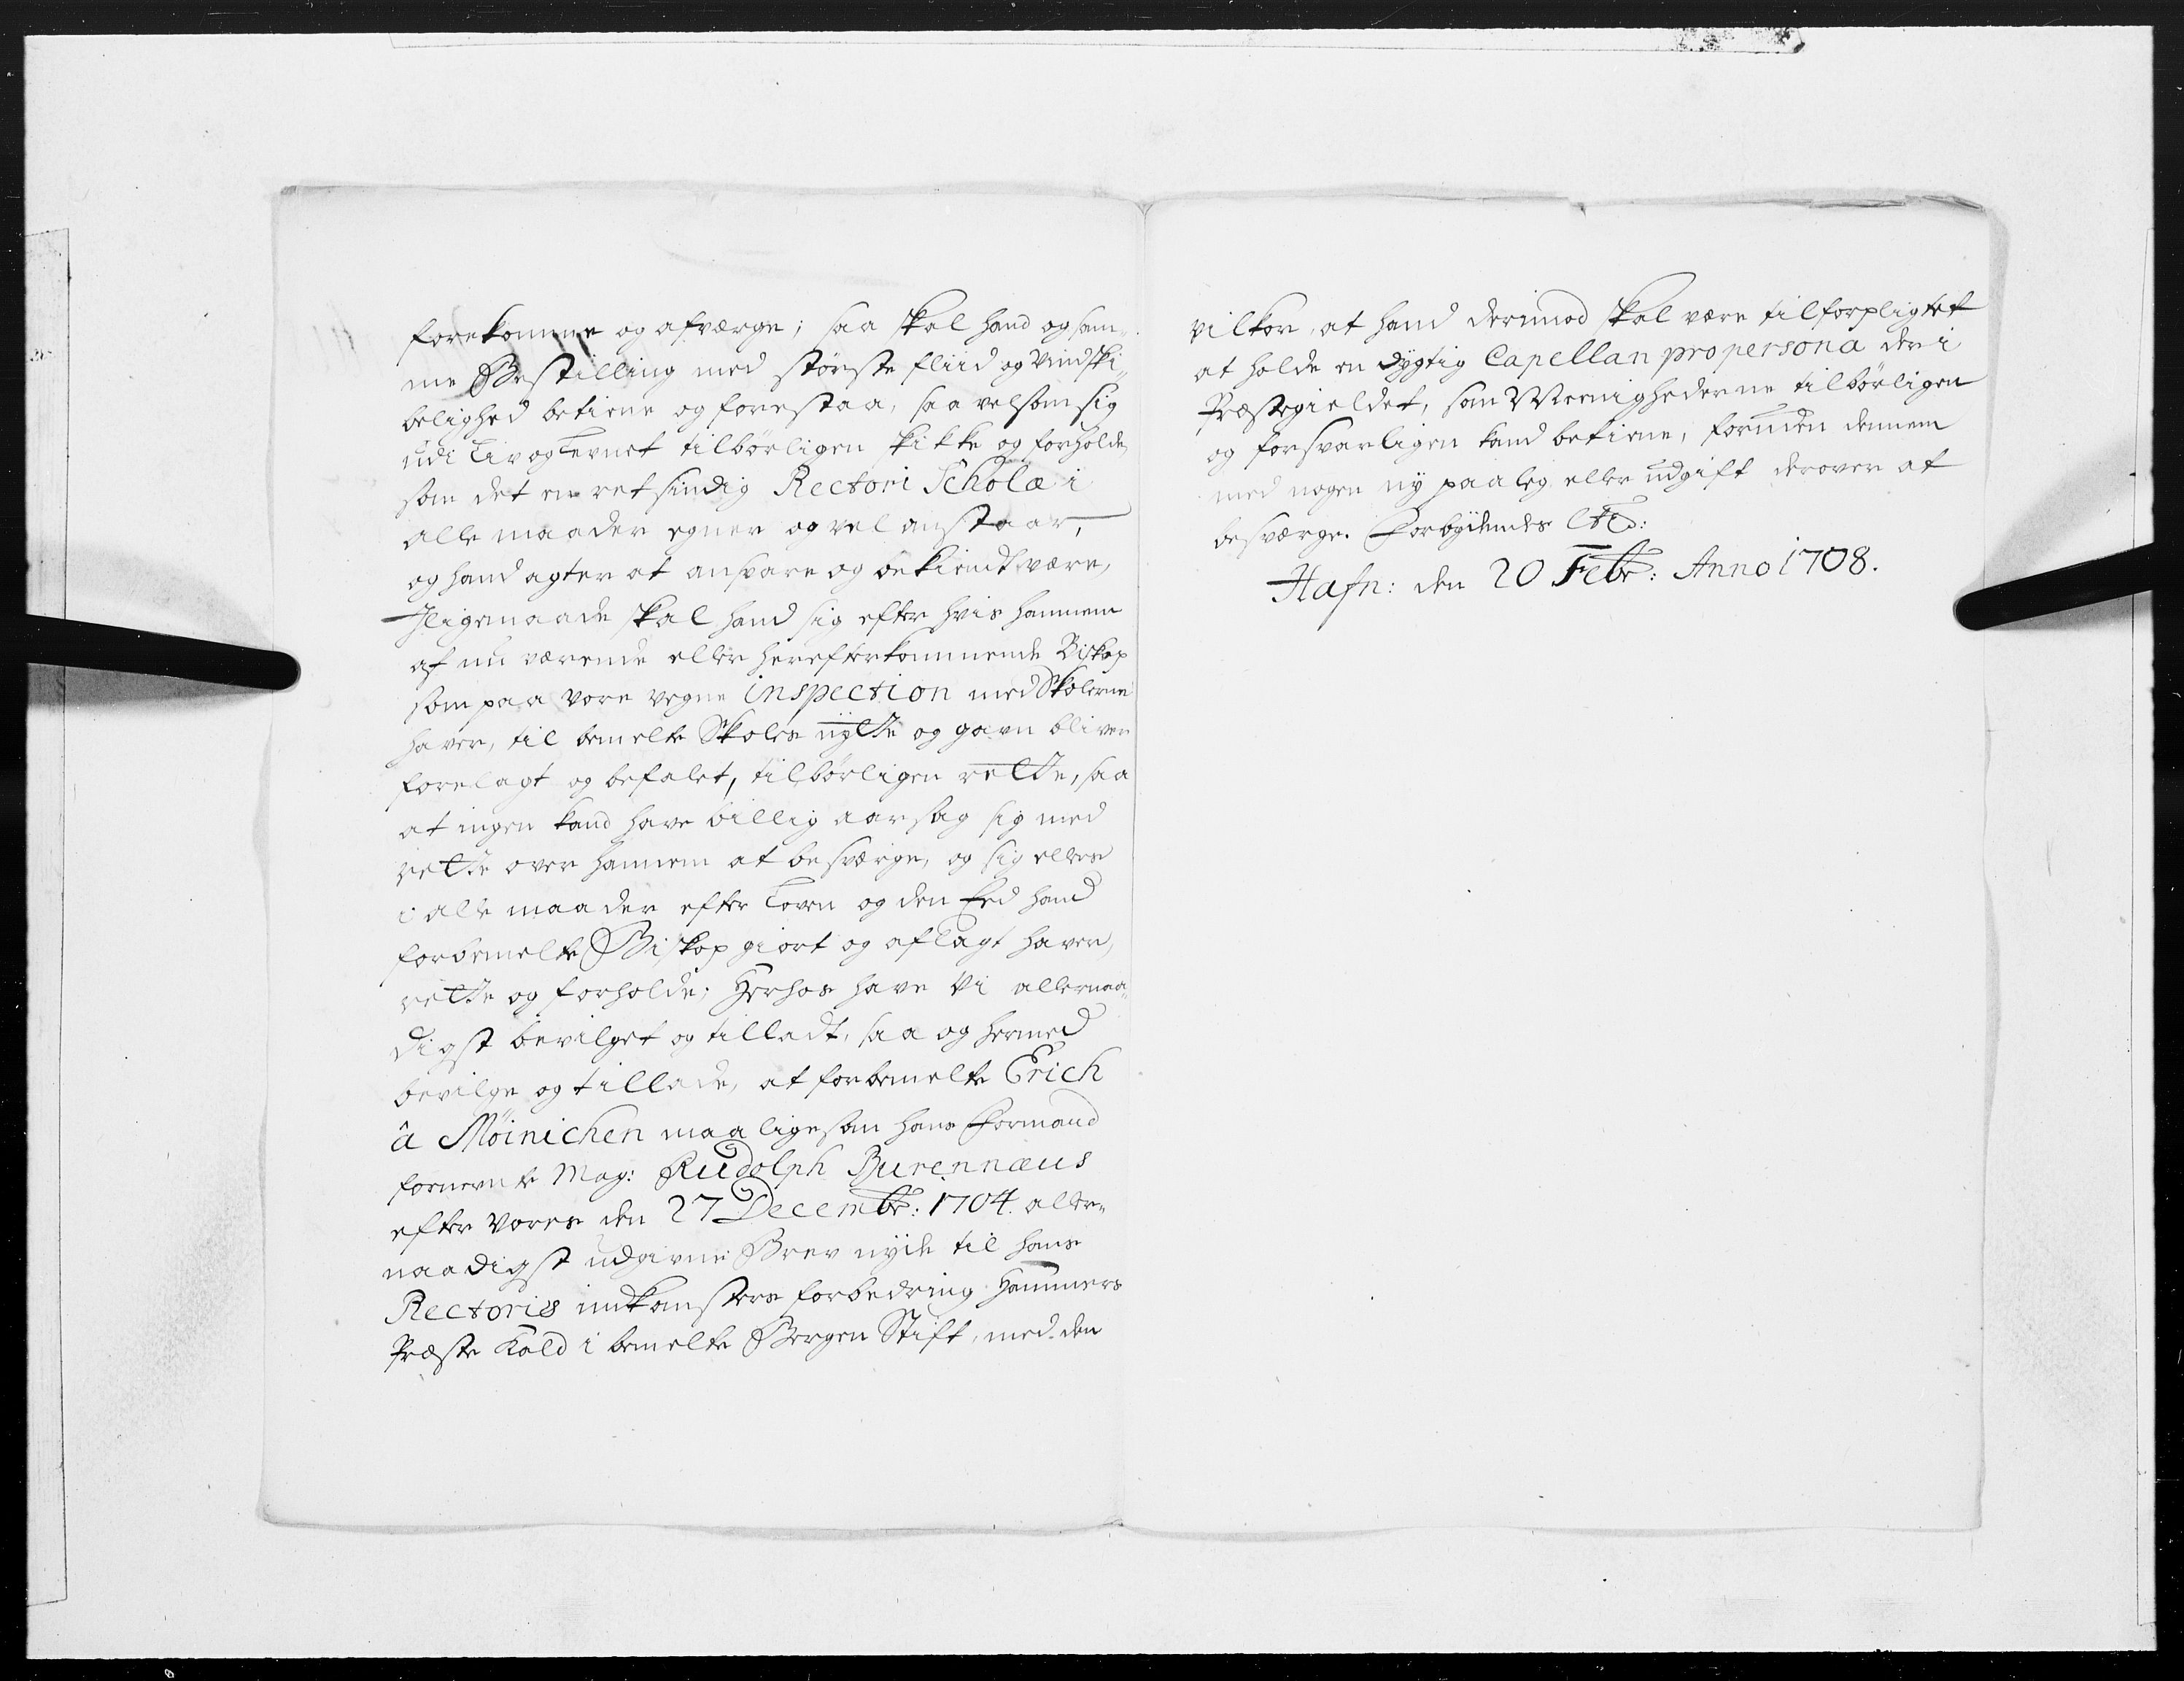 forekomme og afværge; saa skal hand og sam¬
me Bestilling med største fliid og vindski¬
belighed betiene og forestaa, saavelsom sig
udi Liv og Levnet tilbørligen skikke og forholde,
som det en retsindig Rectori Scholæ i
alle maader egner og vel anstaar,
og hand agter at ansvare og bekiendt være,
Jligemaade skal hand sig efter hvis hannem
af nu værende eller herefterkommende Biskop
som paa vore vegne inspection med Skolerne
haver, til bemelte Skoles nytte og gavn bliver
forelagt og befalet, tilbørligen rette, saa
at ingen kand have billig aarsag sig med
rette over hannem at besværge, og sig ellers
i alle maader efter Loven og den Eed hand
forbemelte Biskop giort og aflagt haver,
rette og forholde; Herhos have Vi allernaa¬
digst bevilget og tilladt, saa og hermed
bevilge og tillade, at forbemelte Erich
â Möinichen maa ligesom hans Formand
fornevnte Mag: Rudolph Burennæus
efter Vores den 27 Decembr: 1704. aller¬
naadigst udgivne Brev nyde til hans
Rectoris indkomsters forbedring Hammers
Præste Kald i bemelte Bergen Stift, med den
vilkor, at hand derimod skal være tilforpligtet
at holde en dygtig Capellan pro persona der i
Præstegieldet, som Meenighederne tilbørligen
og forsvarligen kand betiene, foruden dennem
med nogen ny paaleg eller udgift derover at
besværge. Forbydendes etc:
Hafn: den 20 Febr: Anno 1708.